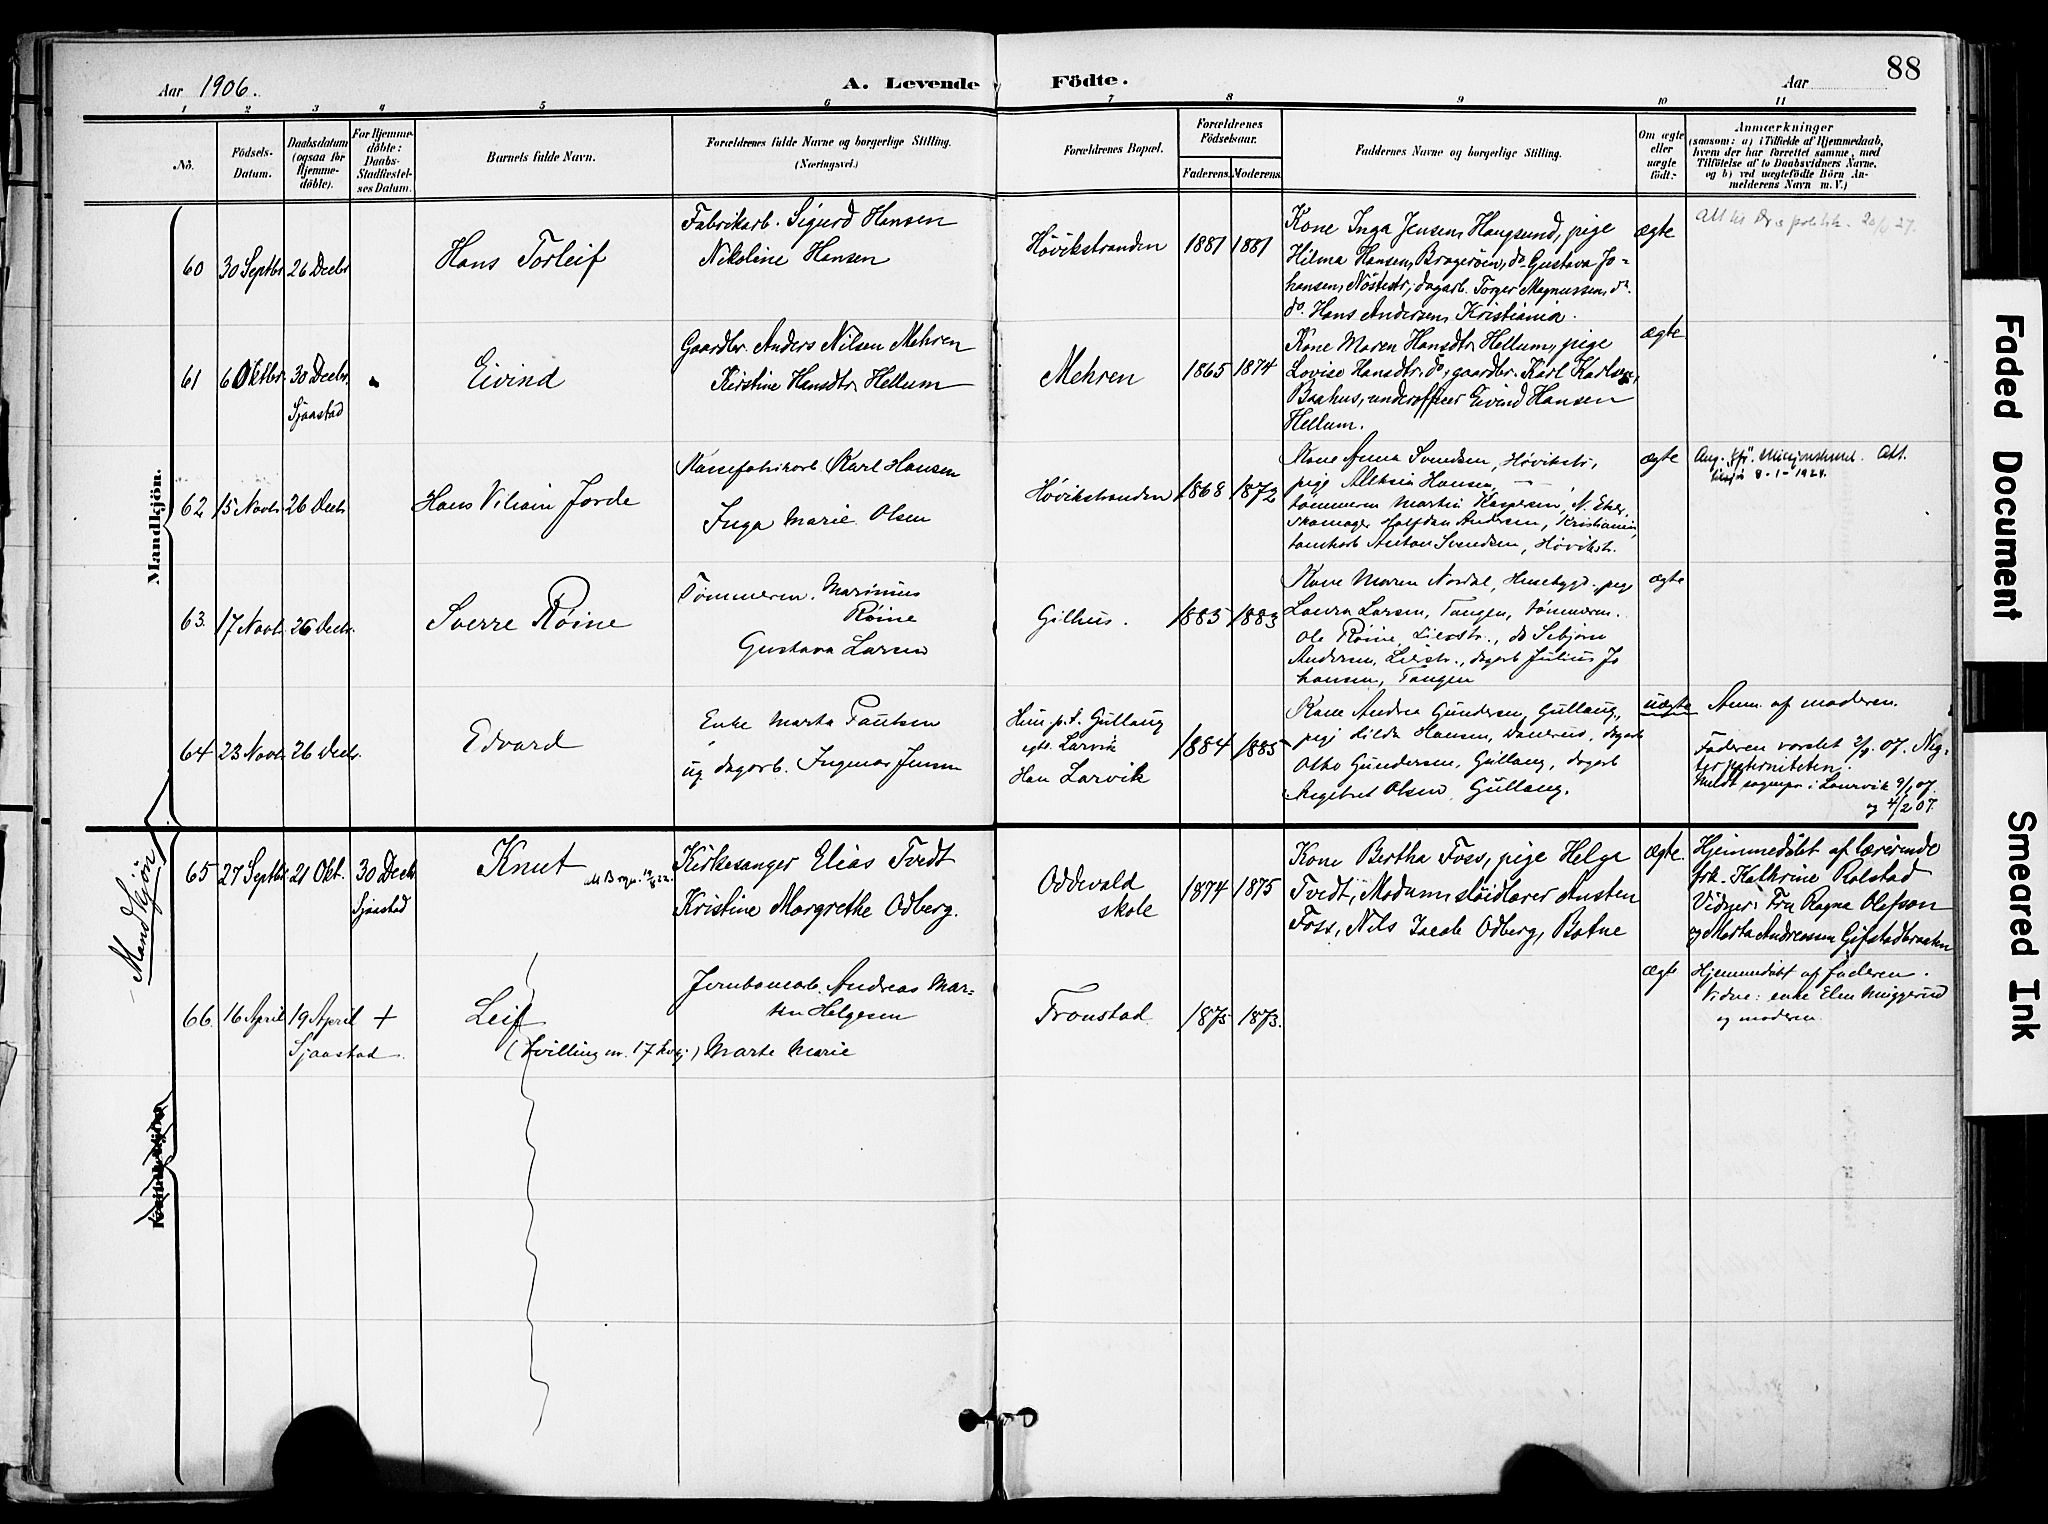 Aar 1906.
A. Levende Födte.
Aar
88
1 2 3 4 5 6 7 8 9 10 11
Nò.
Födsels-
Datum.
Daabsdatum
(ogsaa for
Hjemme-
døbte).
For Hjemme-
döbte:
Daabs-
Stadfæstel-
ses Datum.
Barnets fulde Navn.
Forældrenes fulde Navne og borgerlige Stilling.
(Næringsvei.)
Forældrenes Bopæl.
Forældrenes
Födselsaar.
Faderens. Moderens.
Faddernes Navne og borgerlige Stilling.
Om ægte
eller
uægte
født:
Anmærkninger
(saasom: a) i Tilfælde af Hjemmedaab,
hvem der har forrettet samme, med
Tilföielse af to Daabsvidners Navne,
og b) ved uægtefödte Börn An-
melderens Navn m. V.)
Mandkjön.
60 30 Septbr 26 Decbr Hans Torleif
Fabrikarb. Sigurd Hansen
Nikoline Hansen
Høvikstranden 1881 1881
Kone Inga Jensen, Haugsund, pige
Hilma Hansen, Bragerøen, do Gustava Jo-
hansen, Nøstestr., dagarb. Torger Magnussen, do.
do. Hans Andersen, Kristiania.
ægte
61 6 Oktbr 30 Decbr
Sjaastad
Eivind
Gaardbr. Anders Nilsen Mehren
Kirstine Hansdtr. Hellum
Mehren 1865 1874
Kone Maren Hansdtr. Hellum, pige
Lovise Hansdtr. do, gaardbr. Karl Karlsen,
Baahus, underofficer Eivind Hansen
Hellum.
ægte
62 15 Novbr 26 Decbr Hans Viliam Jorde
Karl Hansen
Inga Marie Olsen
Høvikstranden 1868 1872
Kone Anna Svendsen, Høvikstr.,
pige Hansen,
tømmerm. Martin Kaspersen, N. Eker,
skomager Halfdan Andersen, Kristiania,
Anton Svendsen, Høvikstr.
ægte
Att.
8-1-1924.
63. 17 Novbr. 26 Decbr. Sverre Røine
Tømmerm. Marinius
Røine
Gustava Larsen
Gilhus. 1883 1883
Kone Maren Nordal, Husebygd, pige
Laura Larsen, Tangen, tømmerm.
Ole Røine, Lierstr., do Sibjørn
Andersen, Lierstr., dagarb Julius Jo
hansen, Tangen
ægte
64 23 Novbr. 26 Decbr. Edvard
Enke Marta Paulsen
ug dagarb. Ingmar Jensen
Hun p.t. Gullaug
egtl. Larvik
Han Larvik
1884 1885
Kone Andrea Gundersen, Gullaug,
pige Hilda Hansen, dagarb
Otto Gundersen, Gullaug, dagarb
Olsen, Gullaug.
uægte
Anm. af moderen.
Faderen varslet 2/1 07. Neg-
ter paterniteten.
Meldt sognepr. i Laurvik 9/1 07.
og 4/2 07.
Mandkjön
65 27 Septbr. 21 Okt. 30 Decbr.
Sjaastad
Knut
Kirkesanger Elias Tvedt
Kristine Margrethe Odberg.
Oddevald
skole
1874 1875
Kone Bertha Foss, pige Helge
Tvedt, Modum, sløidlærer Austen
Foss, Nils Jacob Odberg, Botne
ægte.
Hjemmedøbt af lærerinde
frk. Kathrine Rolstad
Vidner: Fru Ragna Olafson
og Marta Andreassen Gifstadbraaten
66. 16 April 19 April +
Sjaastad.
Leif
(tvilling m. 17 kvkj)
Jernbanearb. Andreas Mar-
tin Helgesen
Marte Marie
Tronstad. 1875 1873.
ægte
Hjemmedøbt af faderen.
Vidne: enke Elen Muggerud
og moderen.
Kvindekjön.
Faded Document
Smeared Ink